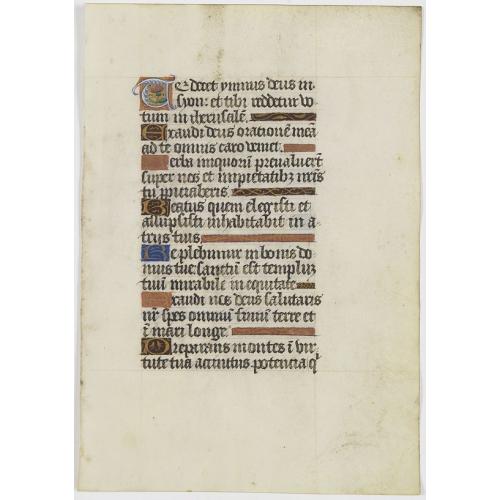 Te decet ymnus deus in
syon: et tibi reddetur vo
tum in iherusalē.
Exaudi deus orationē meā
ad te omnis caro veniet.
Verba iniquorū prevaluerūt
super nos et impietatibz nr̄is
tu ꝓpiciaberis.
Beatus quem elegisti et
assūpsisti inhabitabit in a
triis tuis.
Replebimur in bonis do
mus tue: sanctū est templū
tuū mirabile in equitate
Exaudi nos deus salutaris
nr̄ spes omniū finiū terre et
ī mari longe.
Preparans montes ī vir
tute tua accinctus potencia q̄